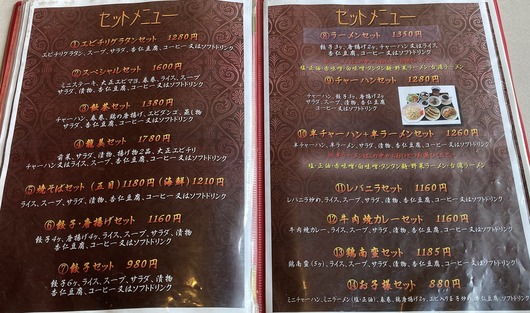 セットメニュー
①エビチリグラタンセット 1280円
エビチリグラタン、スープ、サラダ、杏仁豆腐、コーヒー又はソフトドリンク
②スペシャルセット 1600円
ミニステーキ、大正エビマヨ、春巻、ライス、スープ
サラダ、漬物、杏仁豆腐、コーヒー又はソフトドリンク
③飲茶セット 1380円
チャーハン、春巻、鶏の唐揚げ、エビダンゴ、蒸し物
サラダ、スープ、漬物、杏仁豆腐、コーヒー又はソフトドリンク
④龍美セット 1780円
前菜、サラダ、漬物、揚げ物2品、大正エビチリ
チャーハン又はライス、スープ、杏仁豆腐、コーヒー又はソフトドリンク
⑤焼そばセット(五目)1180円(海鮮)1210円
ライス、スープ、サラダ、漬物、杏仁豆腐、コーヒー又はソフトドリンク
⑥餃子・唐揚げセット 1160円
餃子4ヶ、唐揚げ4ヶ、ライス、スープ、サラダ、漬物
杏仁豆腐、コーヒー又はソフトドリンク
⑦餃子セット 980円
餃子6ヶ、ライス、スープ、サラダ、漬物
杏仁豆腐、コーヒー又はソフトドリンク
セットメニュー
⑧ラーメンセット 1350円
餃子3ヶ、唐揚げ2ヶ、チャーハン又はライス
サラダ、杏仁豆腐、コーヒー又はソフトドリンク
塩・正油・赤味噌・白味噌・タンタン麺・野菜ラーメン・台湾ラーメン
⑨チャーハンセット 1280円
チャーハン、餃子3ヶ、唐揚げ2ヶ
サラダ、スープ、漬物、杏仁豆腐
コーヒー又はソフトドリンク
⑩半チャーハン+半ラーメンセット 1260円
半チャーハン、半ラーメン、サラダ、漬物、杏仁豆腐
コーヒー又はソフトドリンク
塩・正油・赤味噌・白味噌・タンタン麺・野菜ラーメン・台湾ラーメン
⑪レバニラセット 1160円
レバニラ炒め、ライス、スープ、サラダ、漬物、杏仁豆腐、コーヒー又はソフトドリンク
⑫牛肉焼カレーセット 1160円
牛肉焼カレー、スープ、サラダ、漬物、杏仁豆腐、コーヒー又はソフトドリンク
⑬鶏南蛮セット 1185円
鶏南蛮(5ヶ)、ライス、スープ、サラダ、漬物
杏仁豆腐、コーヒー又はソフトドリンク
⑭お子様セット 880円